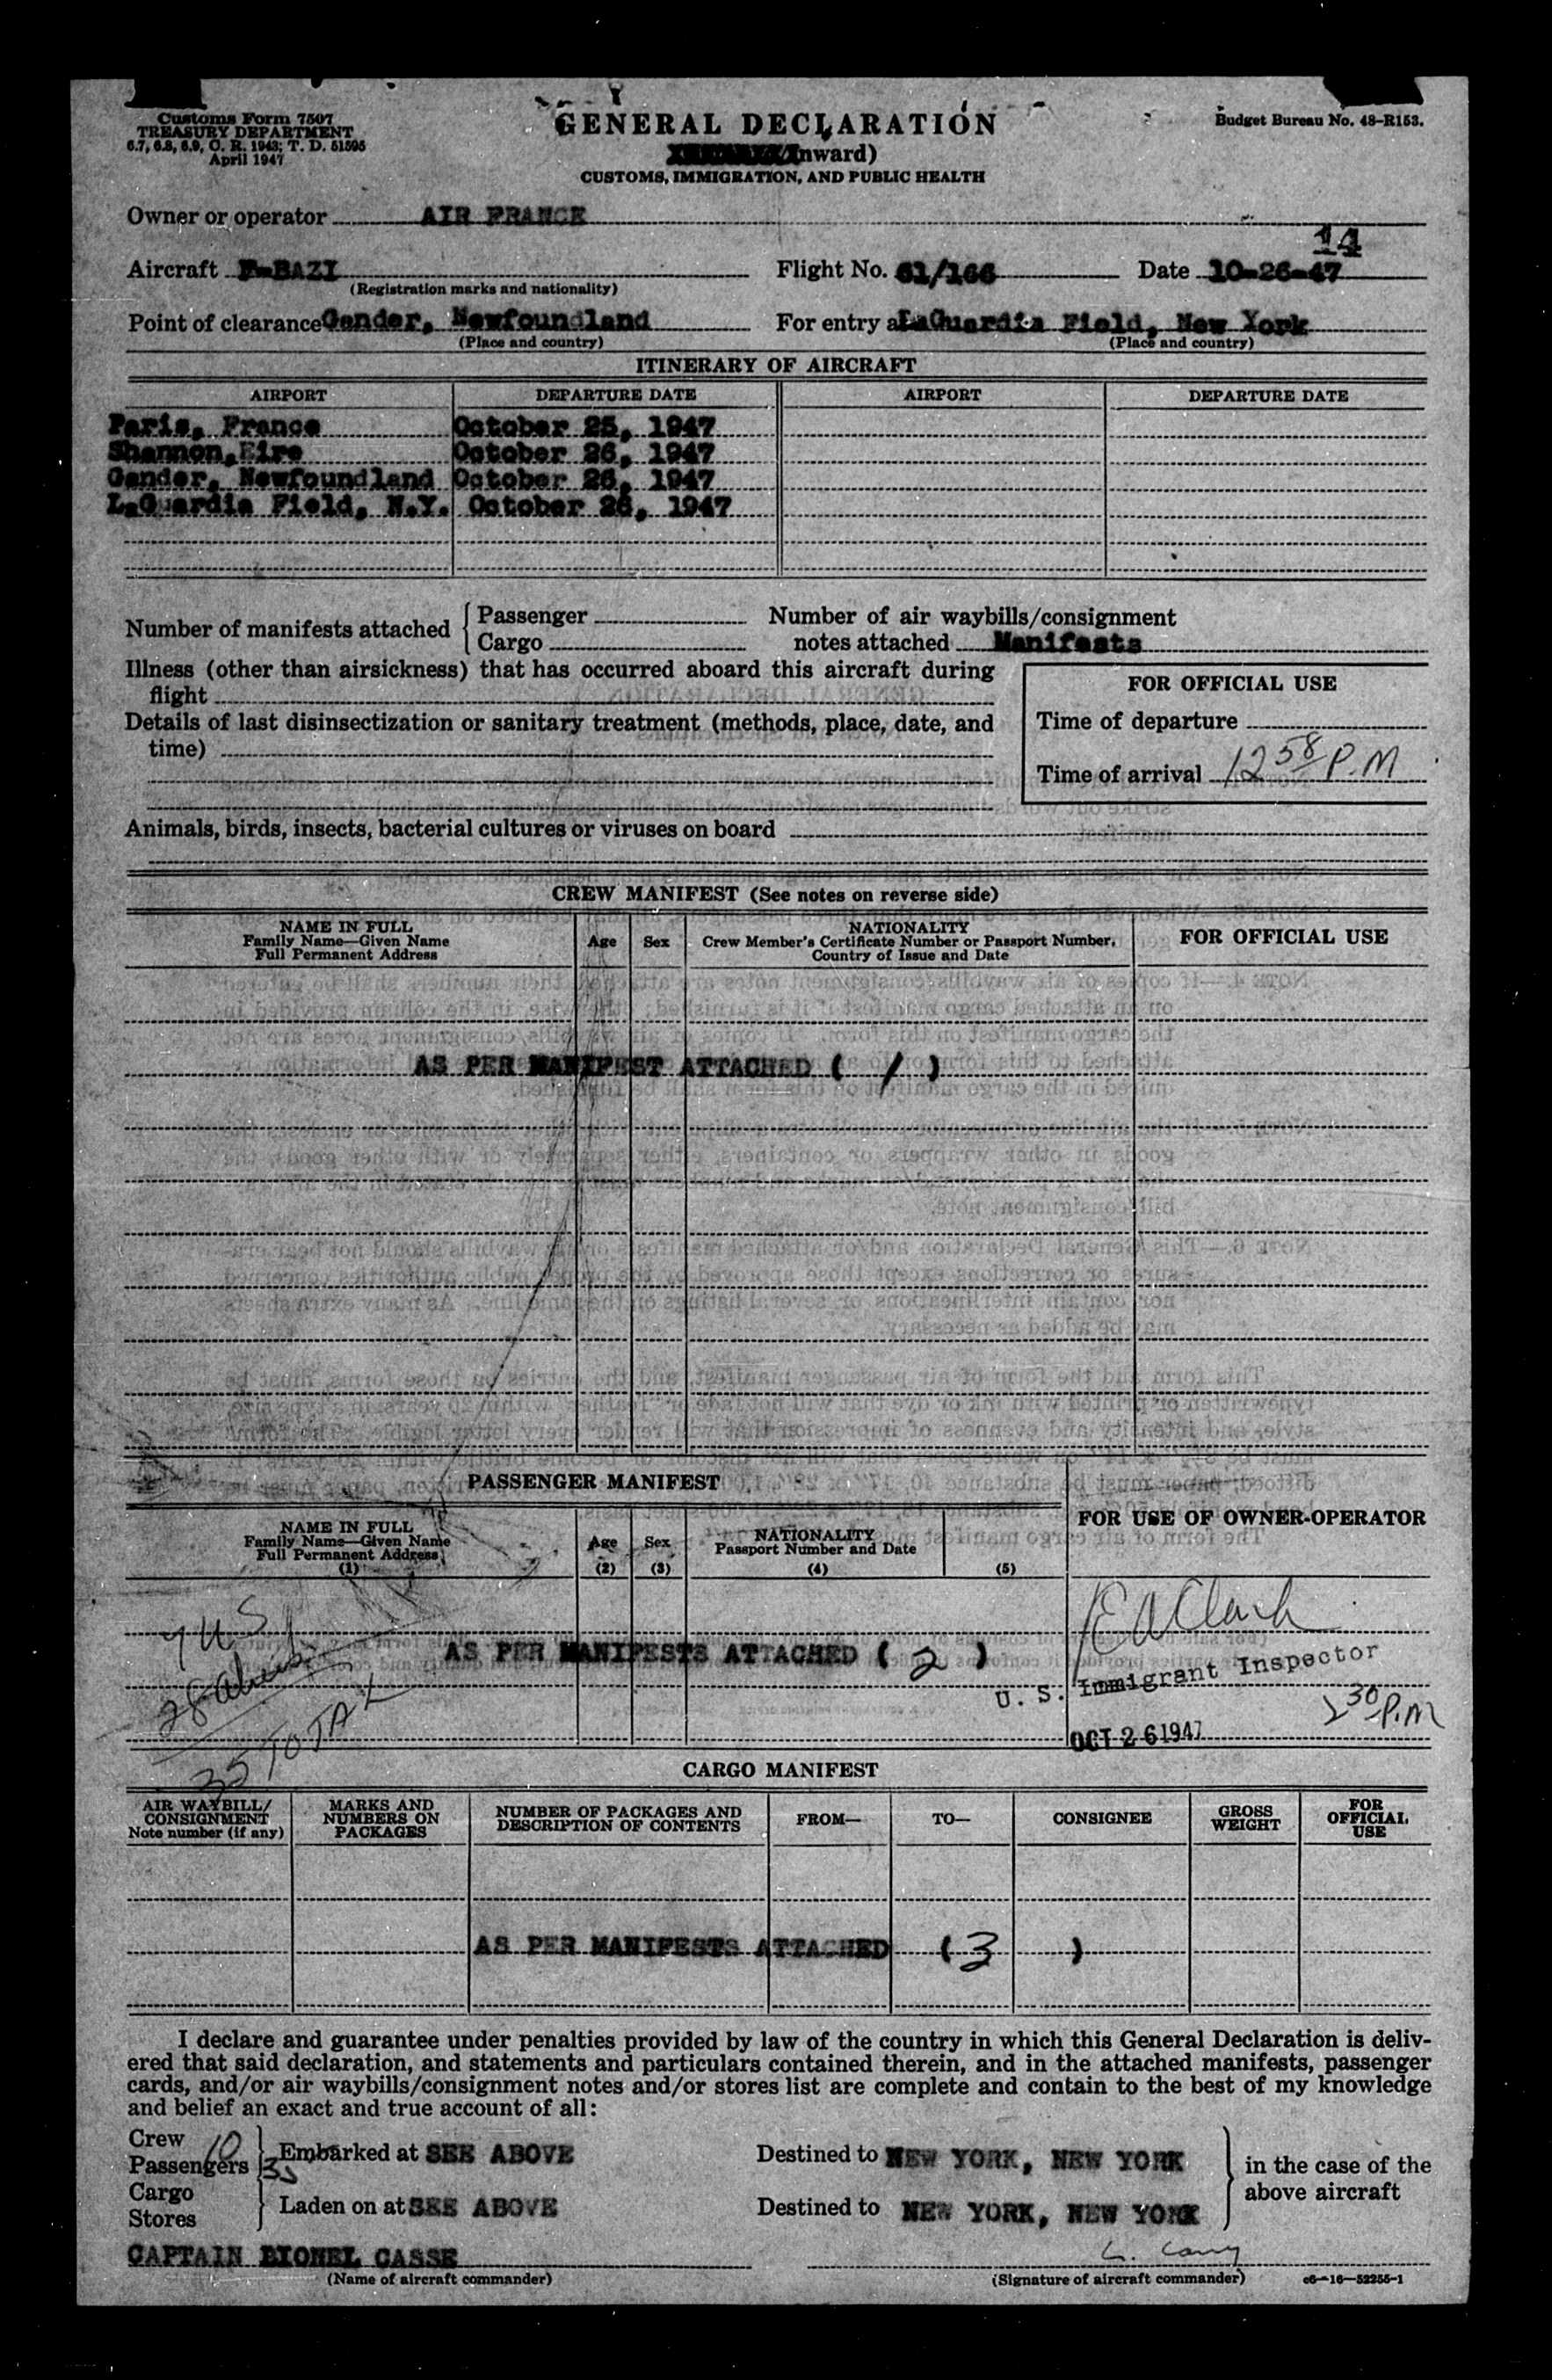 Customs Form 7507
TREASURY DEPARTMENT
6.7, 6.8, 6.9, C. R. 1943; T. D. 51595
April 1947
GENERAL DECLARATION
Inward)
CUSTOMS, IMMIGRATION, AND PUBLIC HEALTH
Budget Bureau No. 48-R153.
Owner or operator AIR FRANCE
14
Aircraft F-BAZI Flight No. 61/166 Date 10-26-47
(Registration marks and nationality)
Point of clearance Gander, Newfoundland For entry at LaGuardia Field, New York
(Place and country) (Place and country)
ITINERARY OF AIRCRAFT
AIRPORT DEPARTURE DATE AIRPORT DEPARTURE DATE
Paris, France October 25, 1947
Shannon, Eire October 26, 1947
Gander, Newfoundland October 26, 1947
LaGuardia Field, N.Y. October 26, 1947
Number of manifests attached { Passenger Number of air waybills/consignment
Cargo notes attached Manifests
Illness (other than airsickness) that has occurred aboard this aircraft during
flight
FOR OFFICIAL USE
Details of last disinsectization or sanitary treatment (methods, place, date, and
time)
Time of departure
Time of arrival 12 58 P.M
Animals, birds, insects, bacterial cultures or viruses on board
CREW MANIFEST (See notes on reverse side)
NAME IN FULL
Family Name—Given Name
Full Permanent Address
Age Sex
NATIONALITY
Crew Member's Certificate Number or Passport Number,
Country of Issue and Date
FOR OFFICIAL USE
AS PER MANIFEST ATTACHED ( 1 )
PASSENGER MANIFEST
FOR USE OF OWNER-OPERATOR
NAME IN FULL
Family Name—Given Name
Full Permanent Address
(1)
Age
(2)
Sex
(3)
NATIONALITY
Passport Number and Date
(4)
(5)
7 US
28 Aliens
35 TOTAL
AS PER MANIFESTS ATTACHED ( 2 )
Clark
U. S. Immigrant Inspector
OCT 26 1947
2 30 P.M
CARGO MANIFEST
AIR WAYBILL/
CONSIGNMENT
Note number (if any)
MARKS AND
NUMBERS ON
PACKAGES
NUMBER OF PACKAGES AND
DESCRIPTION OF CONTENTS
FROM— TO— CONSIGNEE
GROSS
WEIGHT
FOR
OFFICIAL
USE
AS PER MANIFESTS ATTACHED ( 3 )
I declare and guarantee under penalties provided by law of the country in which this General Declaration is deliv-
ered that said declaration, and statements and particulars contained therein, and in the attached manifests, passenger
cards, and/or air waybills/consignment notes and/or stores list are complete and contain to the best of my knowledge
and belief an exact and true account of all:
Crew 10
Passengers 35 } Embarked at SEE ABOVE Destined to NEW YORK, NEW YORK
in the case of the
above aircraft
Cargo
Stores } Laden on at SEE ABOVE Destined to NEW YORK, NEW YORK
CAPTAIN LIONEL CASSE
(Name of aircraft commander) (Signature of aircraft commander) c6—16—52255-1